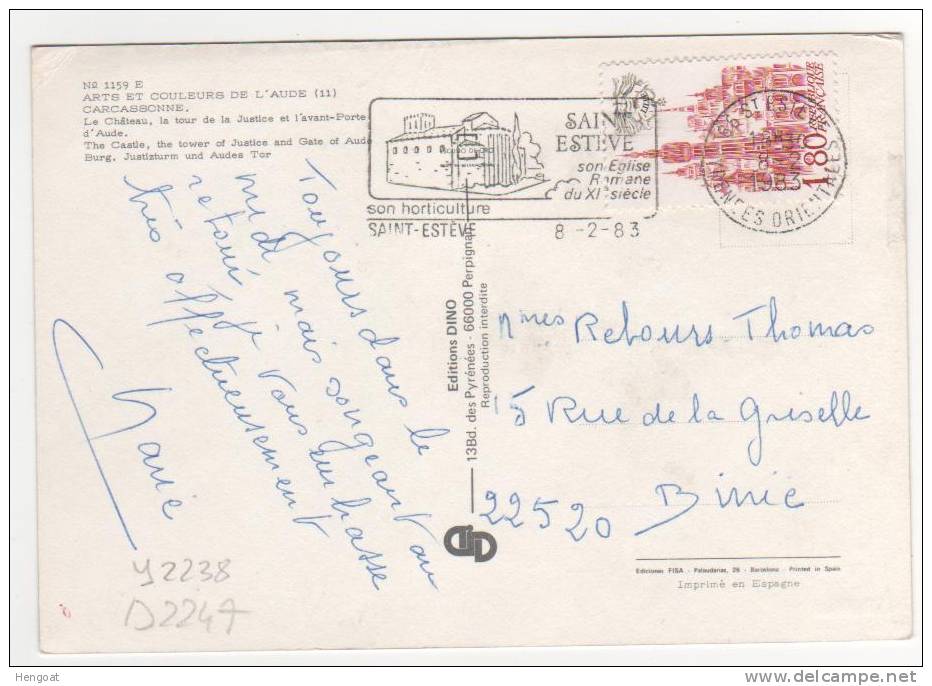 No 1159 E
ARTS ET COULEURS DE L'AUDE (11)
CARCASSONNE.
Le Château, la tour de la Justice et l'avant-Porte
d'Aude.
The Castle, the tower of Justice and Gate of Aude
Burg, Justizturm und Audes Tor
Toujours dans le
midi mais songeant au
retour, je vous embrasse
très affectueusement
Marie
Y2238
D2247
SAINT
ESTÈVE
son Eglise
Romane
du XIe siècle
son horticulture
SAINT-ESTÈVE
8-2-83
1983
ORIENTALES
1,80
REPUBLIQUE
FRANÇAISE
Editions DINO
13Bd. des Pyrénées - 66000 Perpignan
Reproduction interdite
Mmes Retours-Thomas
15 Rue de la Griselle
22520 Binic
Ediciones FISA - Palaudarias, 26 - Barcelona - Printed in Spain
Imprimé en Espagne
Hengoat
delcampe.net